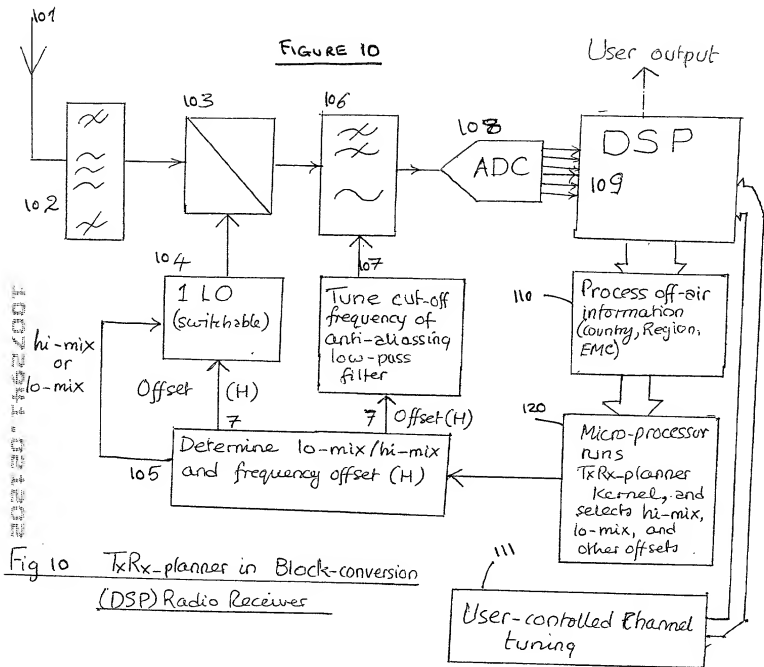 101
FIGURE 10
User output
103
106
108
102
ADC
DSP
109
104
107
1 LO
(switchable)
Tune cut-off
frequency of
anti-aliassing
low-pass
filter
110
Process off-air
information
(Country, Region,
EMC)
hi-mix
or
lo-mix
Offset (H)
7
7 Offset (H)
105
Determine lo-mix/hi-mix
and frequency offset (H)
120
Micro-processor
runs
TxRx-planner
Kernel, and
selects hi-mix,
lo-mix, and
other offsets.
Fig 10 TxRx-planner in Block-conversion
(DSP) Radio Receiver
111
User-contolled Channel
tuning